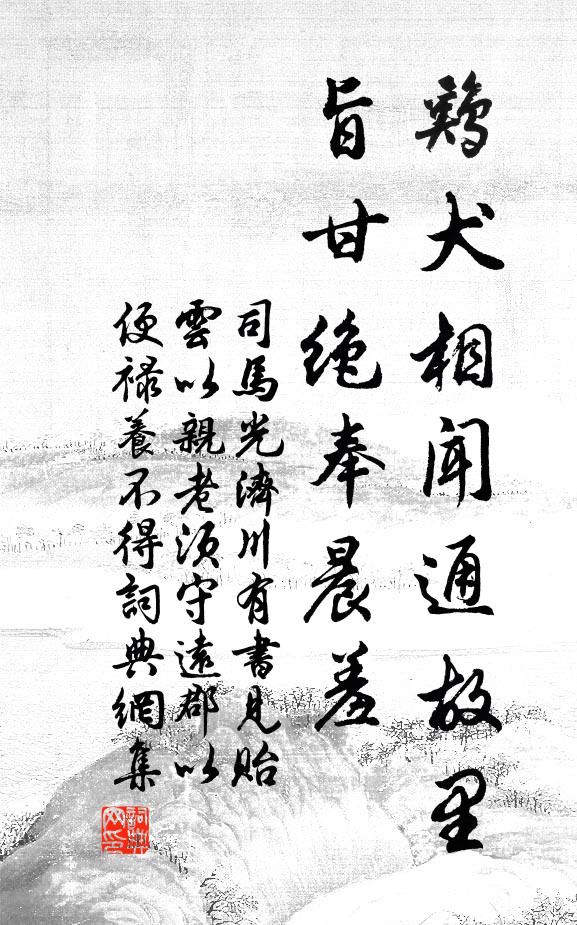 鷄犬相聞通故里
旨甘絶奉晨羞
司馬光濟川有書見貽
雲以親老須守遠郡以
便禄養不得詞典網集